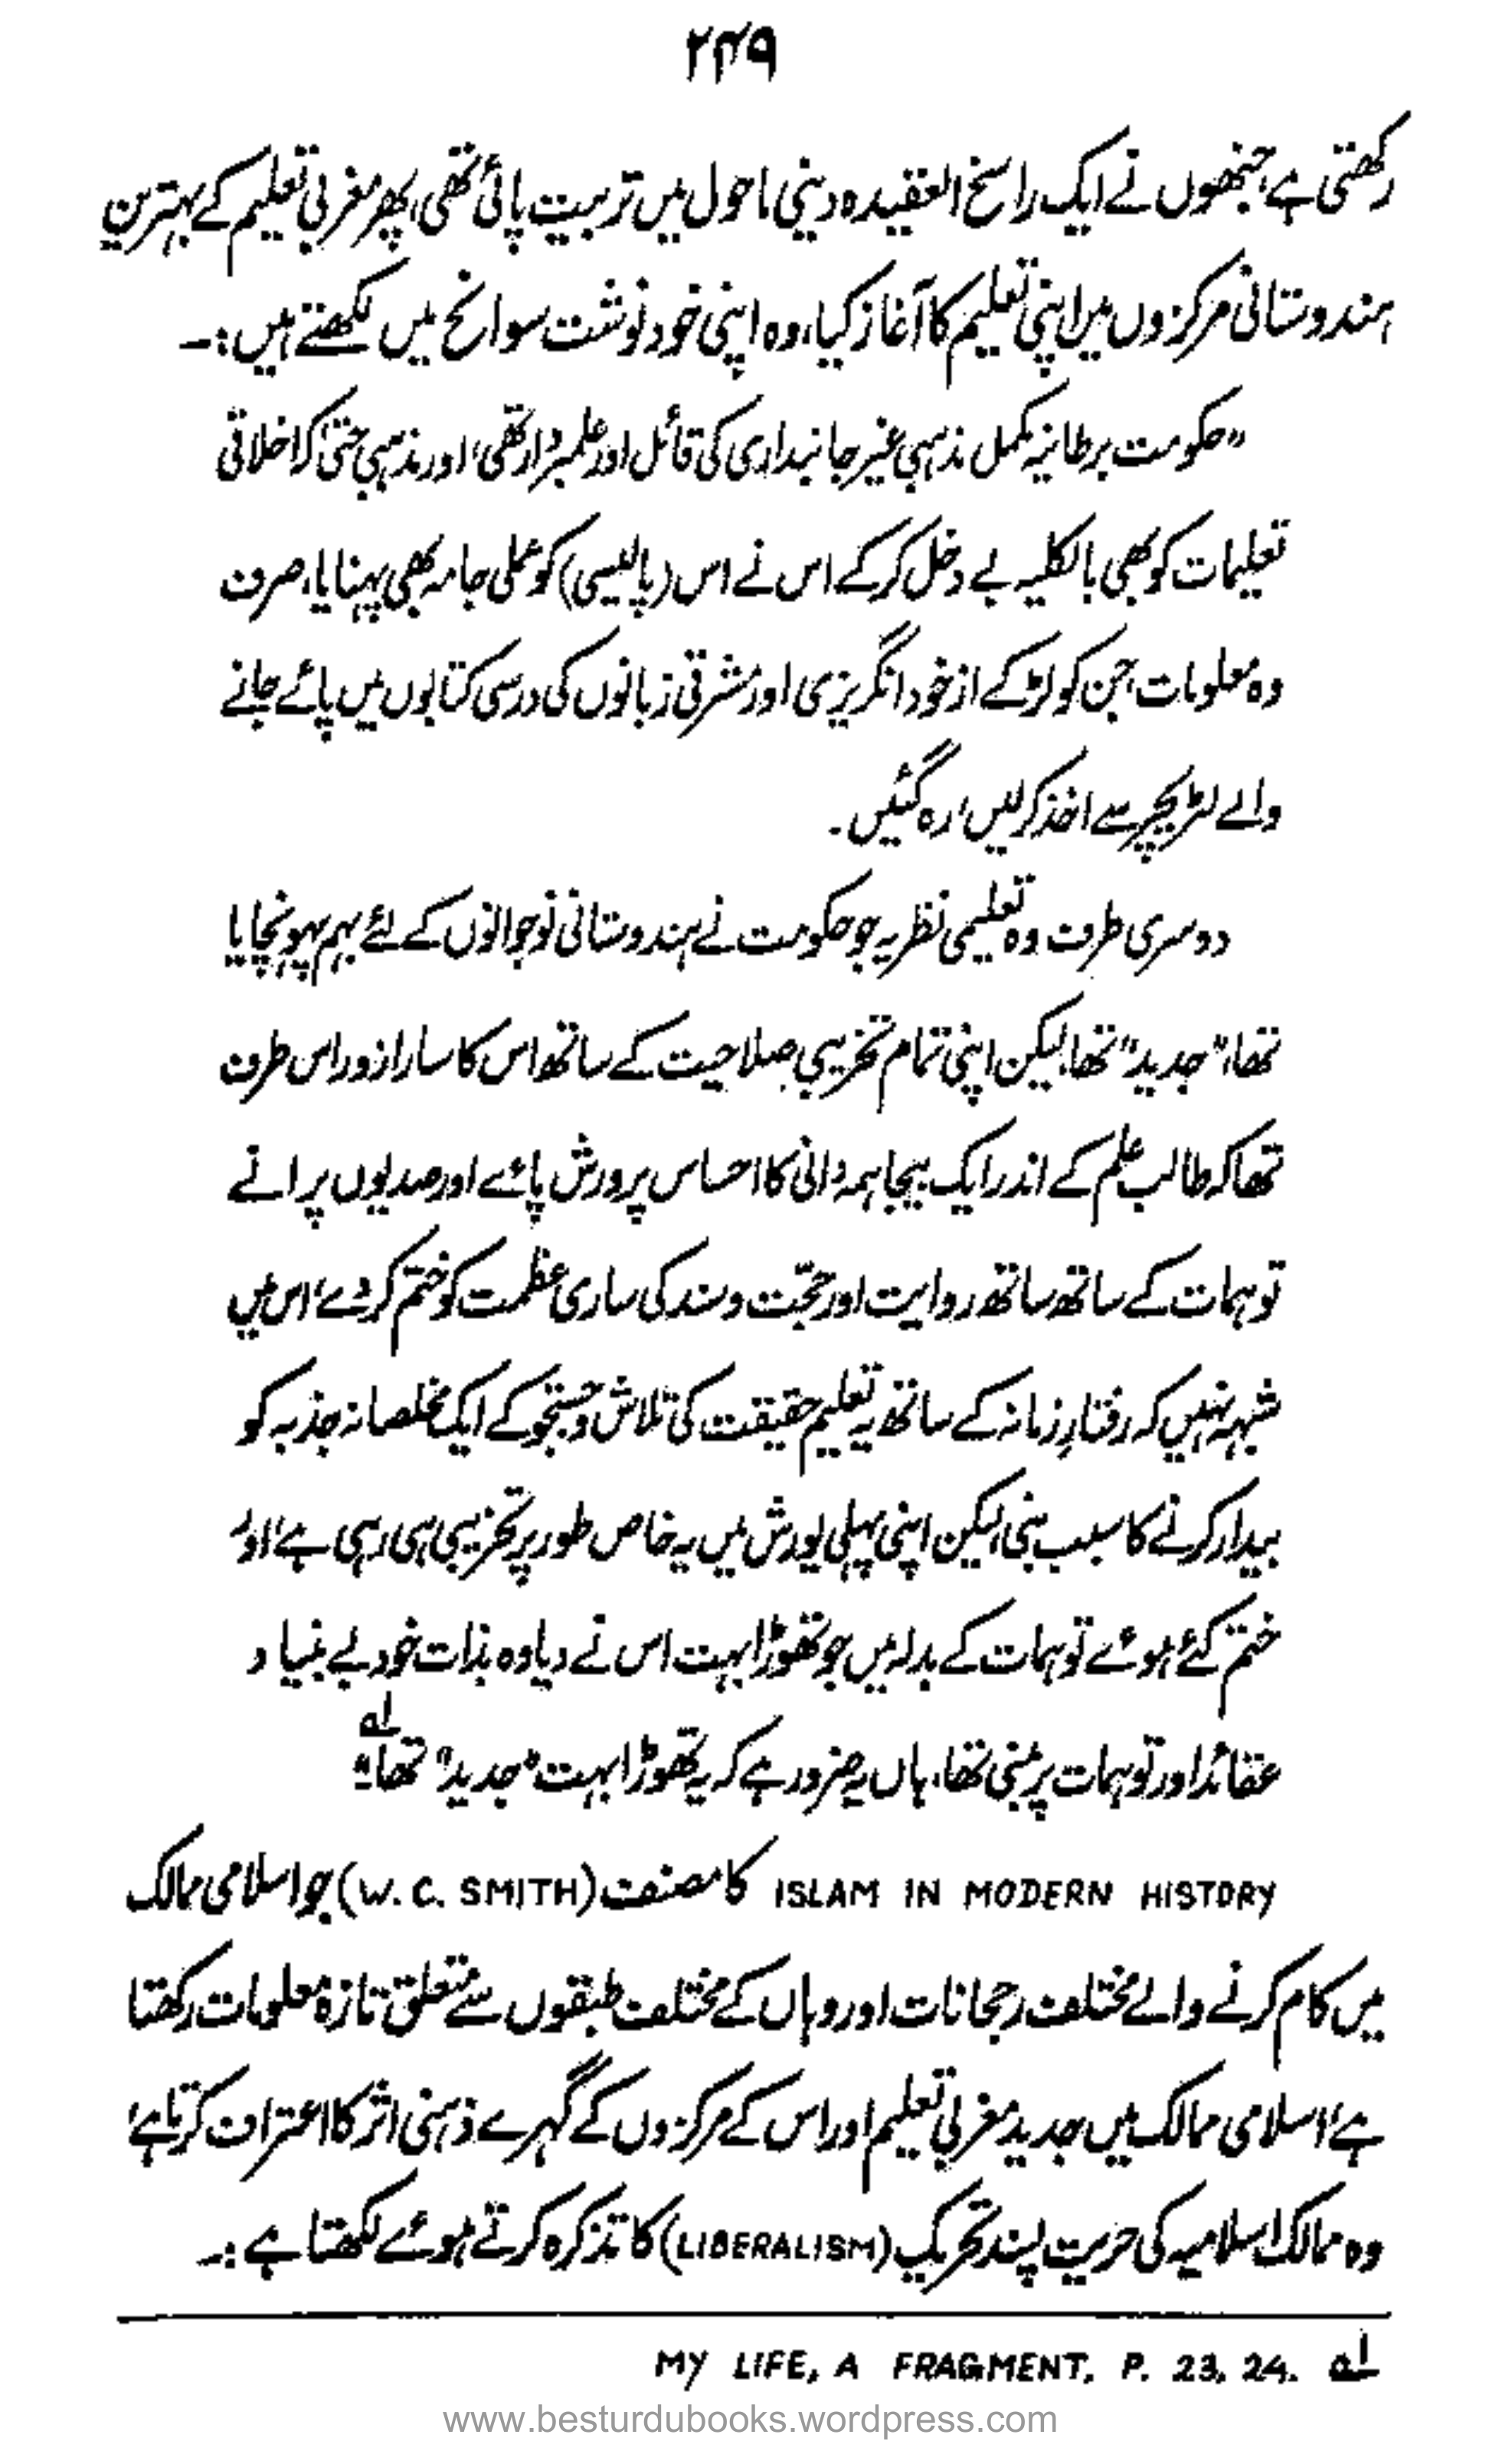 ۲۴۹
رکھتی ہے، جنھوں نے ایک راسخ العقیدہ دینی ماحول میں تربیت پائی تھی، پھر مغربی تعلیم کے بہترین
ہندوستانی مرکزوں میں اپنی تعلیم کا آغاز کیا، وہ اپنی خود نوشت سوانح میں لکھتے ہیں:۔
"حکومت برطانیہ مکمل مذہبی غیر جانبداری کی قائل اور علمبردار تھی، اور مذہبی حتیٰ کہ اخلاقی
تعلیمات کو بھی بالکلیہ بے دخل کر کے اس نے اس (پالیسی) کو عملی جامہ بھی پہنایا، صرف
وہ معلومات جن کو لڑکے از خود انگریزی اور مشرقی زبانوں کی درسی کتابوں میں پائے جانے
والے لٹریچر سے اخذ کر لیں، رہ گئیں۔
دوسری طرف وہ تعلیمی نظریہ جو حکومت نے ہندوستانی نوجوانوں کے لئے بہم پہونچایا
تھا، "جدید" تھا، لیکن اپنی تمام تخریبی صلاحیت کے ساتھ اس کا سارا زور اس طرف
تھا کہ طالب علم کے اندر ایک بیجا ہمہ دانی کا احساس پرورش پائے اور صدیوں پرانے
توہمات کے ساتھ ساتھ روایت اور حجّت و سند کی ساری عظمت کو ختم کر دے، اس میں
شبہہ نہیں کہ رفتارِ زمانہ کے ساتھ یہ تعلیم حقیقت کی تلاش و جستجو کے ایک مخلصانہ جذبہ کو
بیدار کرنے کا سبب بنی، لیکن اپنی پہلی یورش میں یہ خاص طور پر تخریبی ہی رہی ہے، اور
ختم کئے ہوئے توہمات کے بدلہ میں جو تھوڑا بہت اس نے دیا وہ بذات خود بے بنیاد
عقائد اور توہمات پر مبنی تھا، ہاں یہ ضرور ہے کہ یہ تھوڑا بہت "جدید" تھا"؂۱
ISLAM IN MODERN HISTORY کا مصنف (W. C. SMITH) جو اسلامی ممالک
میں کام کرنے والے مختلف رجحانات اور وہاں کے مختلف طبقوں سے متعلق تازہ معلومات رکھتا
ہے، اسلامی ممالک میں جدید مغربی تعلیم اور اس کے مرکزوں کے گہرے ذہنی اثر کا اعتراف کرتا ہے،
وہ ممالک اسلامیہ کی حریت پسند تحریک (LIBERALISM) کا تذکرہ کرتے ہوئے لکھتا ہے:۔
؂۱ MY LIFE, A FRAGMENT. P. 23, 24.
www.besturdubooks.wordpress.com